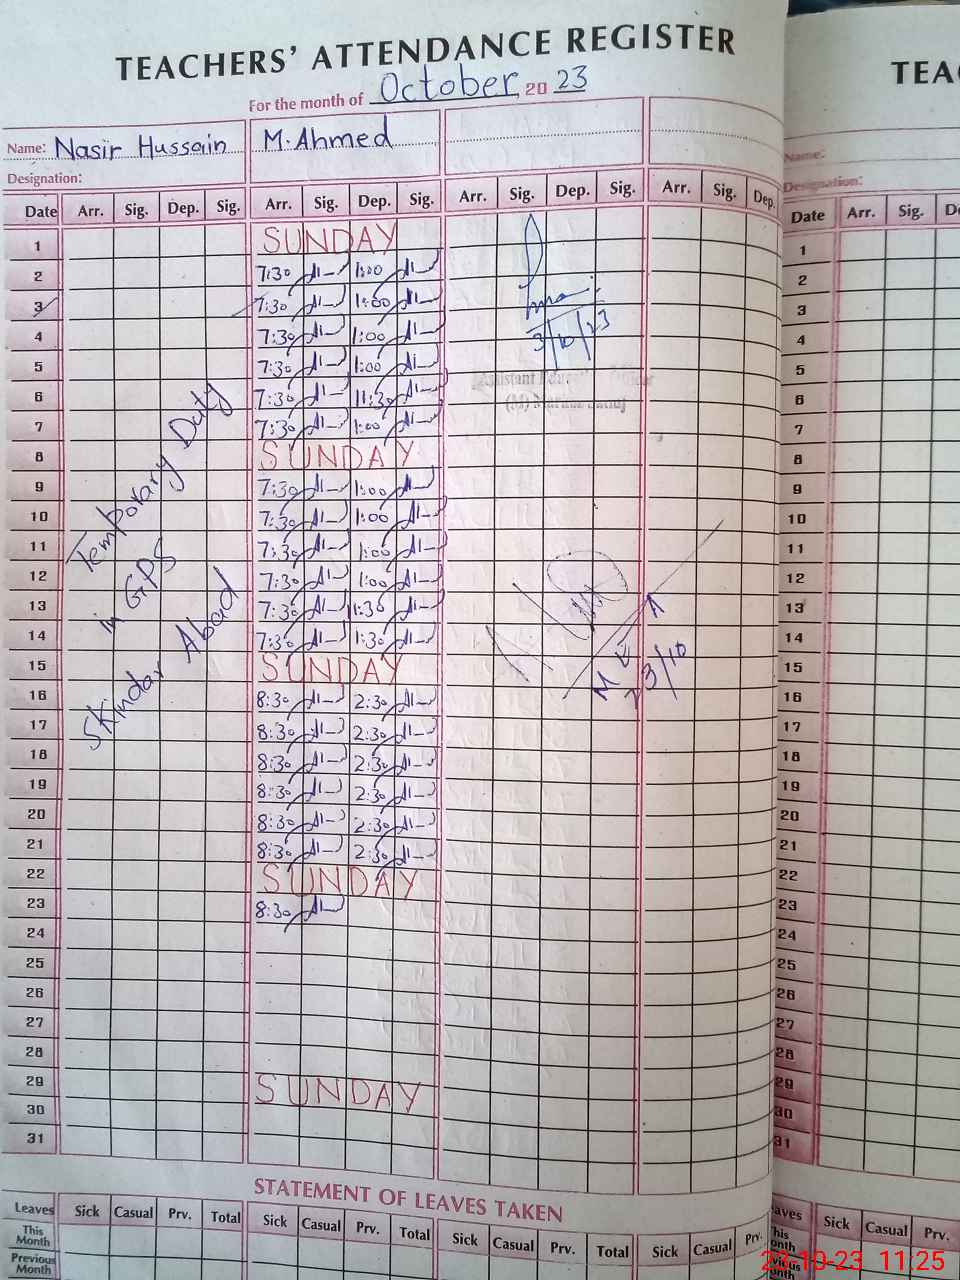 TEACHERS' ATTENDANCE REGISTER
For the month of October 20 23
Name: Nasir Hussain M.Ahmed
Designation:
Date Arr. Sig. Dep. Sig. Arr. Sig. Dep. Sig. Arr. Sig. Dep. Sig. Arr. Sig. Dep.
1 SUNDAY
2 7:30 1:00
3 7:30 1:00
4 7:30 1:00
5 7:30 1:00
6 7:30 11:30
7 7:30 1:00
8 SUNDAY
9 7:30 1:00
10 7:30 1:00
11 7:30 1:00
12 7:30 1:00
13 7:30 1:30
14 7:30 1:30
15 SUNDAY
16 8:30 2:30
17 8:30 2:30
18 8:30 2:30
19 8:30 2:30
20 8:30 2:30
21 8:30 2:30
22 SUNDAY
23 8:30
24
25
26
27
28
29 SUNDAY
30
31
Temporary Duty
in GPS
Skindar Abad
3/10/23
Assistant
(M)
MEA
23/10
STATEMENT OF LEAVES TAKEN
Leaves Sick Casual Prv. Total Sick Casual Prv. Total Sick Casual Prv. Total Sick Casual Prv.
This Month
Previous Month
TEA
Name:
Designation:
Date Arr. Sig. De
1
2
3
4
5
6
7
8
9
10
11
12
13
14
15
16
17
18
19
20
21
22
23
24
25
26
27
28
29
30
31
aves Sick Casual Prv.
his
onth
vious
onth
23-10-23 11:25